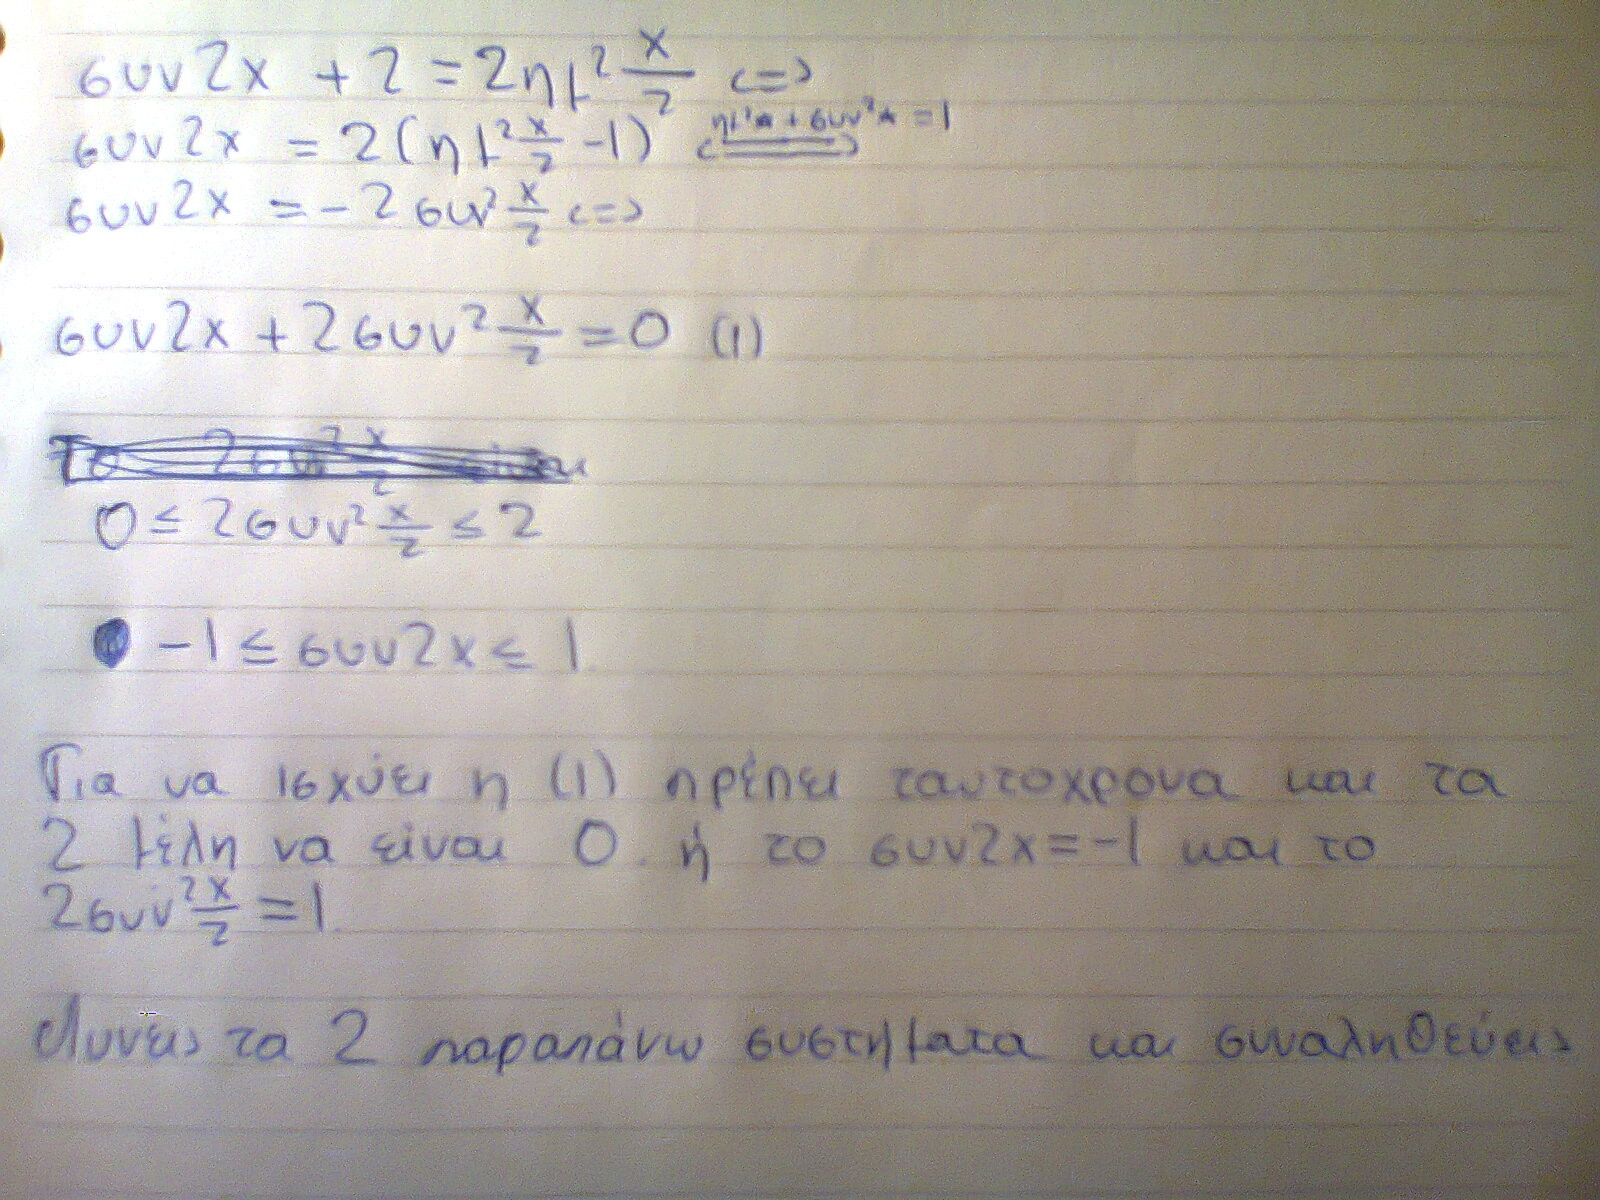 συν2x + 2 = 2ημ² x/2 <=>
συν2x = 2(ημ² x/2 - 1) <=> ημ²α + συν²α = 1
συν2x = -2συν² x/2 <=>
συν2x + 2συν² x/2 = 0 (1)
0 ≤ 2συν² x/2 ≤ 2
-1 ≤ συν2x ≤ 1
Για να ισχύει η (1) πρέπει ταυτοχρονα και τα
2 μέλη να είναι 0 ή το συν2x=-1 και το
2συν² x/2 = 1.
Λυνεις τα 2 παραπάνω συστηματα και συναληθεύεις